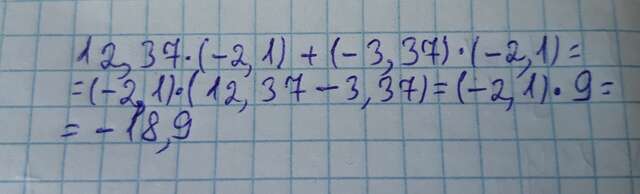 12,37·(-2,1)+(-3,37)·(-2,1)=
=(-2,1)·(12,37-3,37)=(-2,1)·9=
=-18,9